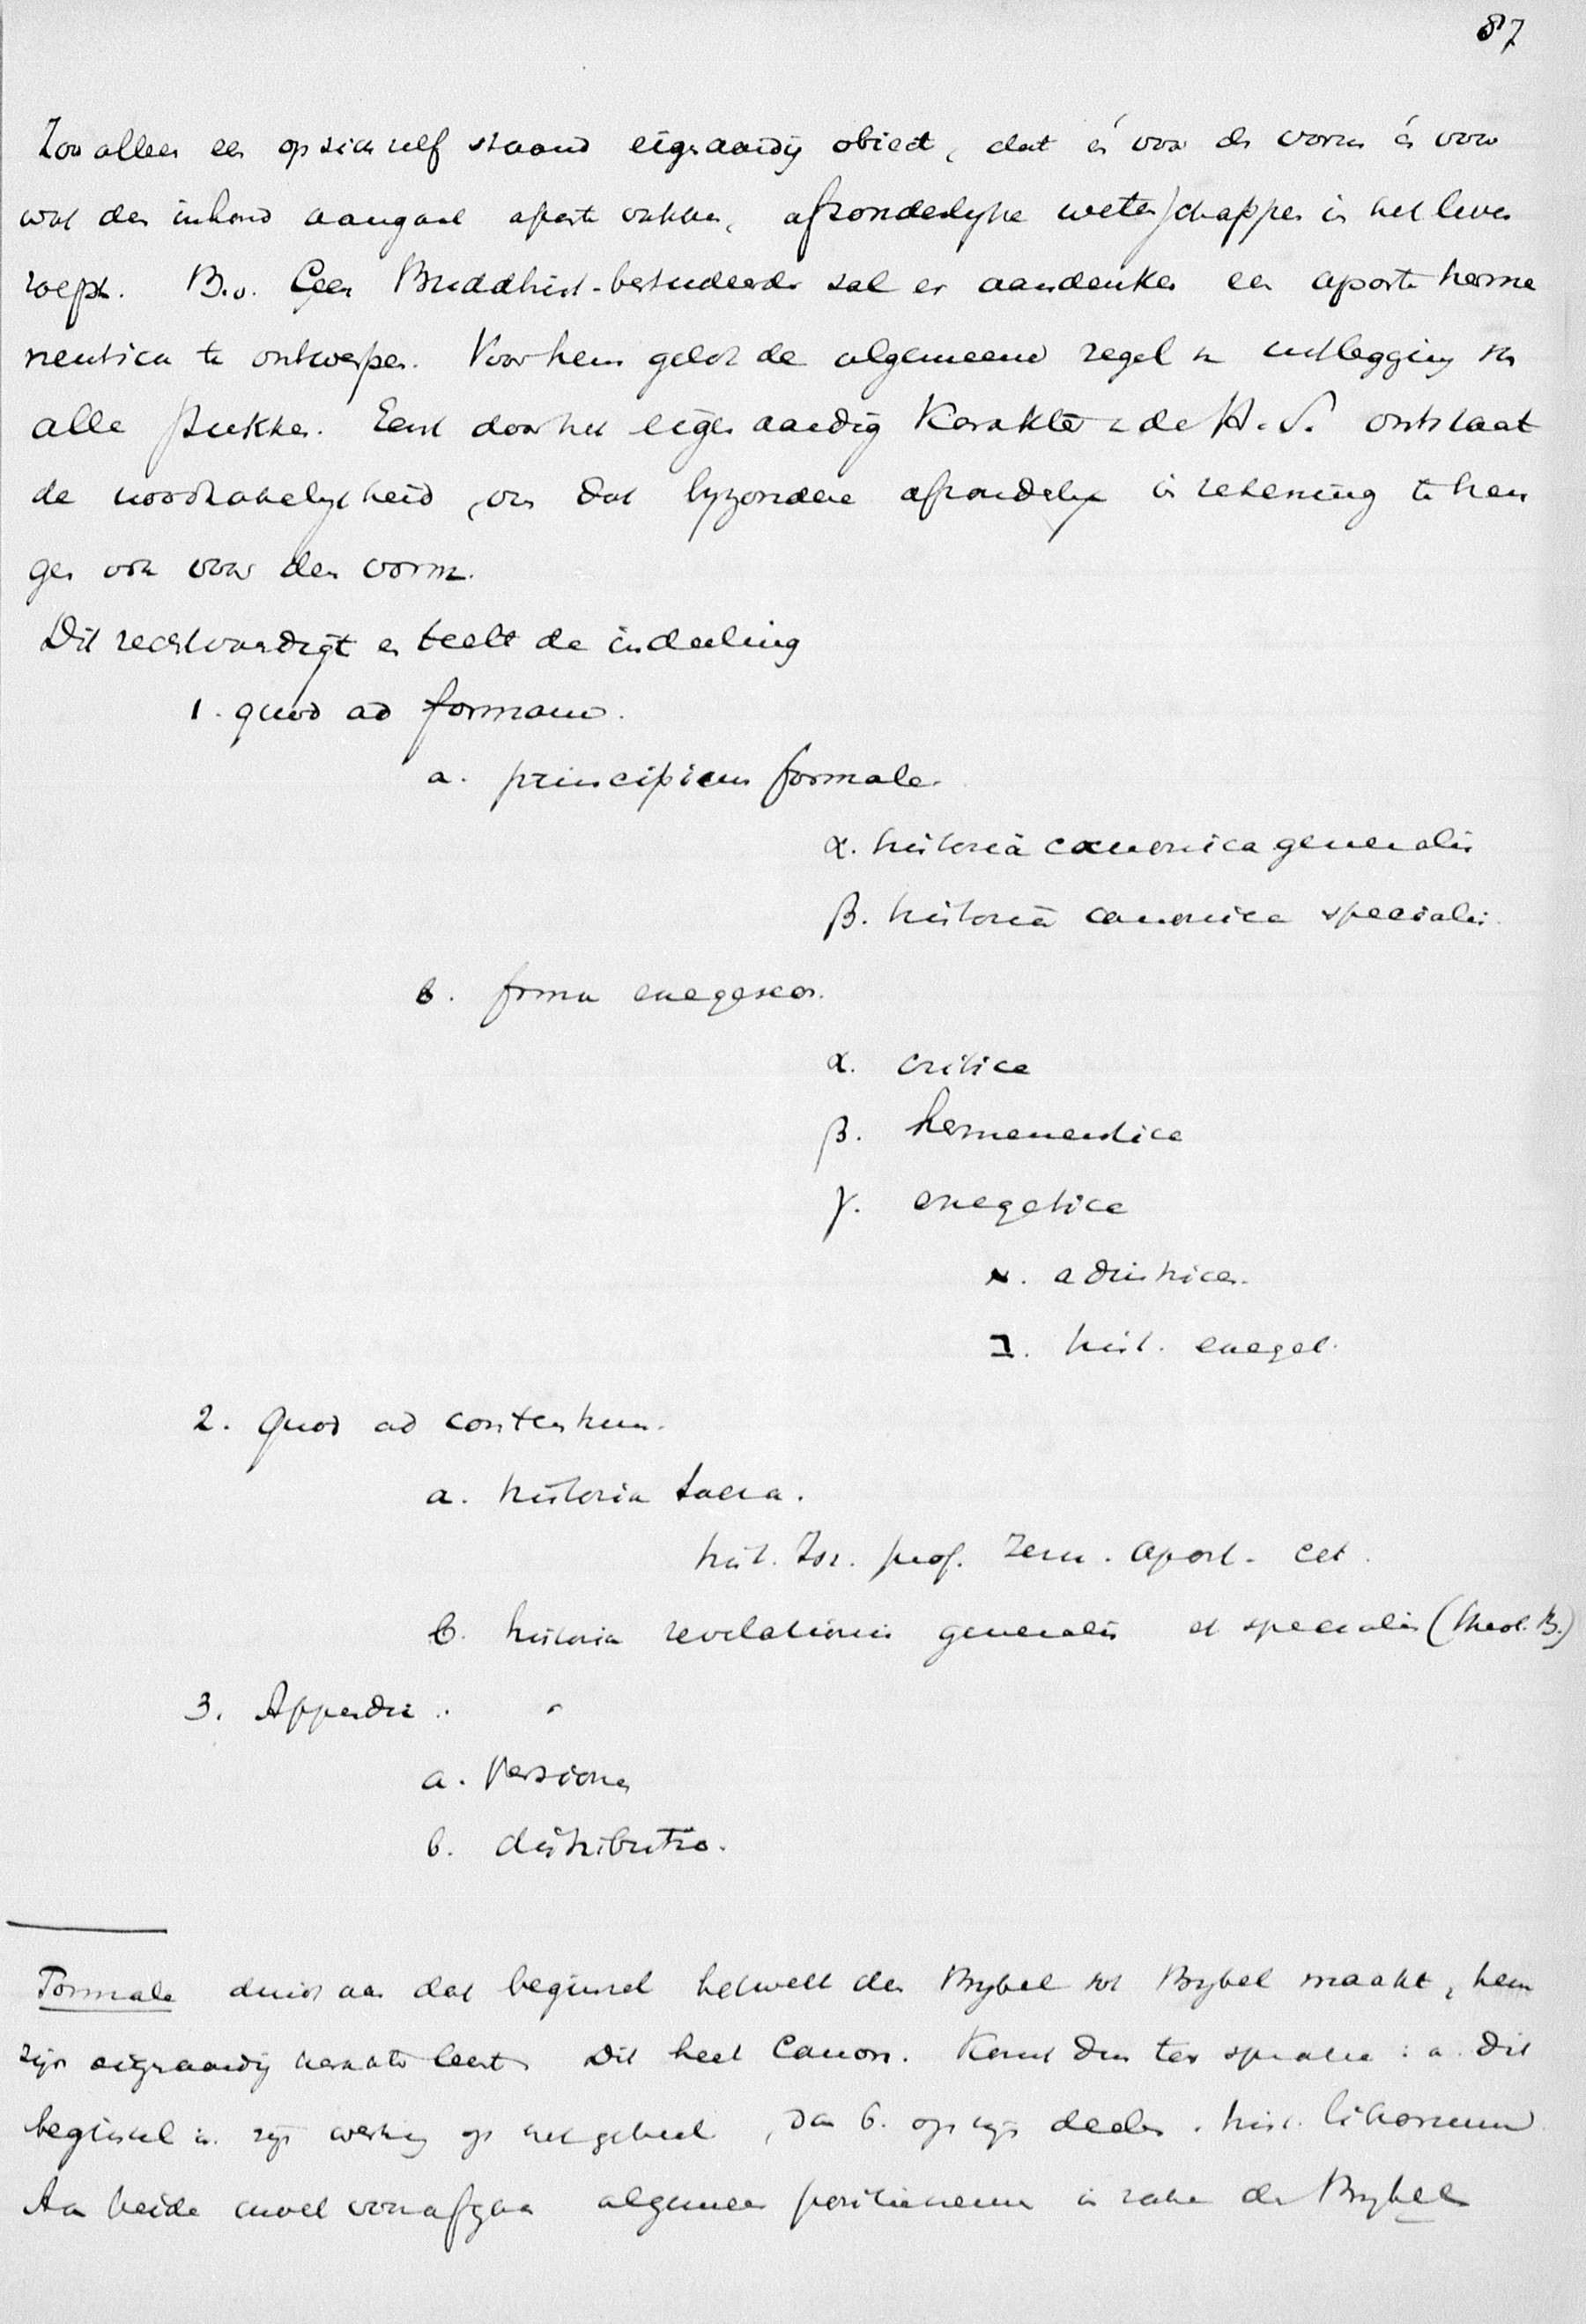 87
Zoo alleen een op zich zelf staand eigenaardig object, dat én voor den vorm én voor
wat den inhoud aangaat aparte vakken, afzonderlijke wetenschappen in het leven
roept. B.v. Geen Buddhist-bestudeerder zal er aan denken een aparte herme
neutica te ontwerpen. Voor hem geldt de algemeene regel v uitlegging v
alle stukken. Eerst door het eigenaardig karakter v de H.S. ontstaat
de noodzakelijkheid, om dat byzondere afzonderlijk in rekening te bren
gen ook voor den vorm.
Dit rechtvaardigt en teelt de indeeling
1. quod ad formam.
a. principium formale.
α. historia canonica generalis
β. historia canonica specialis.
b. forma exegeseos.
α. critice
β. hermeneutice
γ. exegetice
א. adminice.
ב. hist. exeget.
2. Quod ad contentum.
a. historia sacra.
hist. Isr. prof. Jesu. apost. cet.
b. historia revelationis generalis et specialis (theol. B.)
3. Appendix.
a. Versiones
b. distributio.
Formale duidt aan dat beginsel hetwelk den Bybel tot Bybel maakt, hem
zijn eigenaardig karakter leent. Dit heet Canon. Komt dus ter sprake: a. dit
beginsel in zijn werking op het geheel, dan b. op zijn deelen. hist. librorum
Aan beide moet voorafgaan algemeen in zake de Bybel